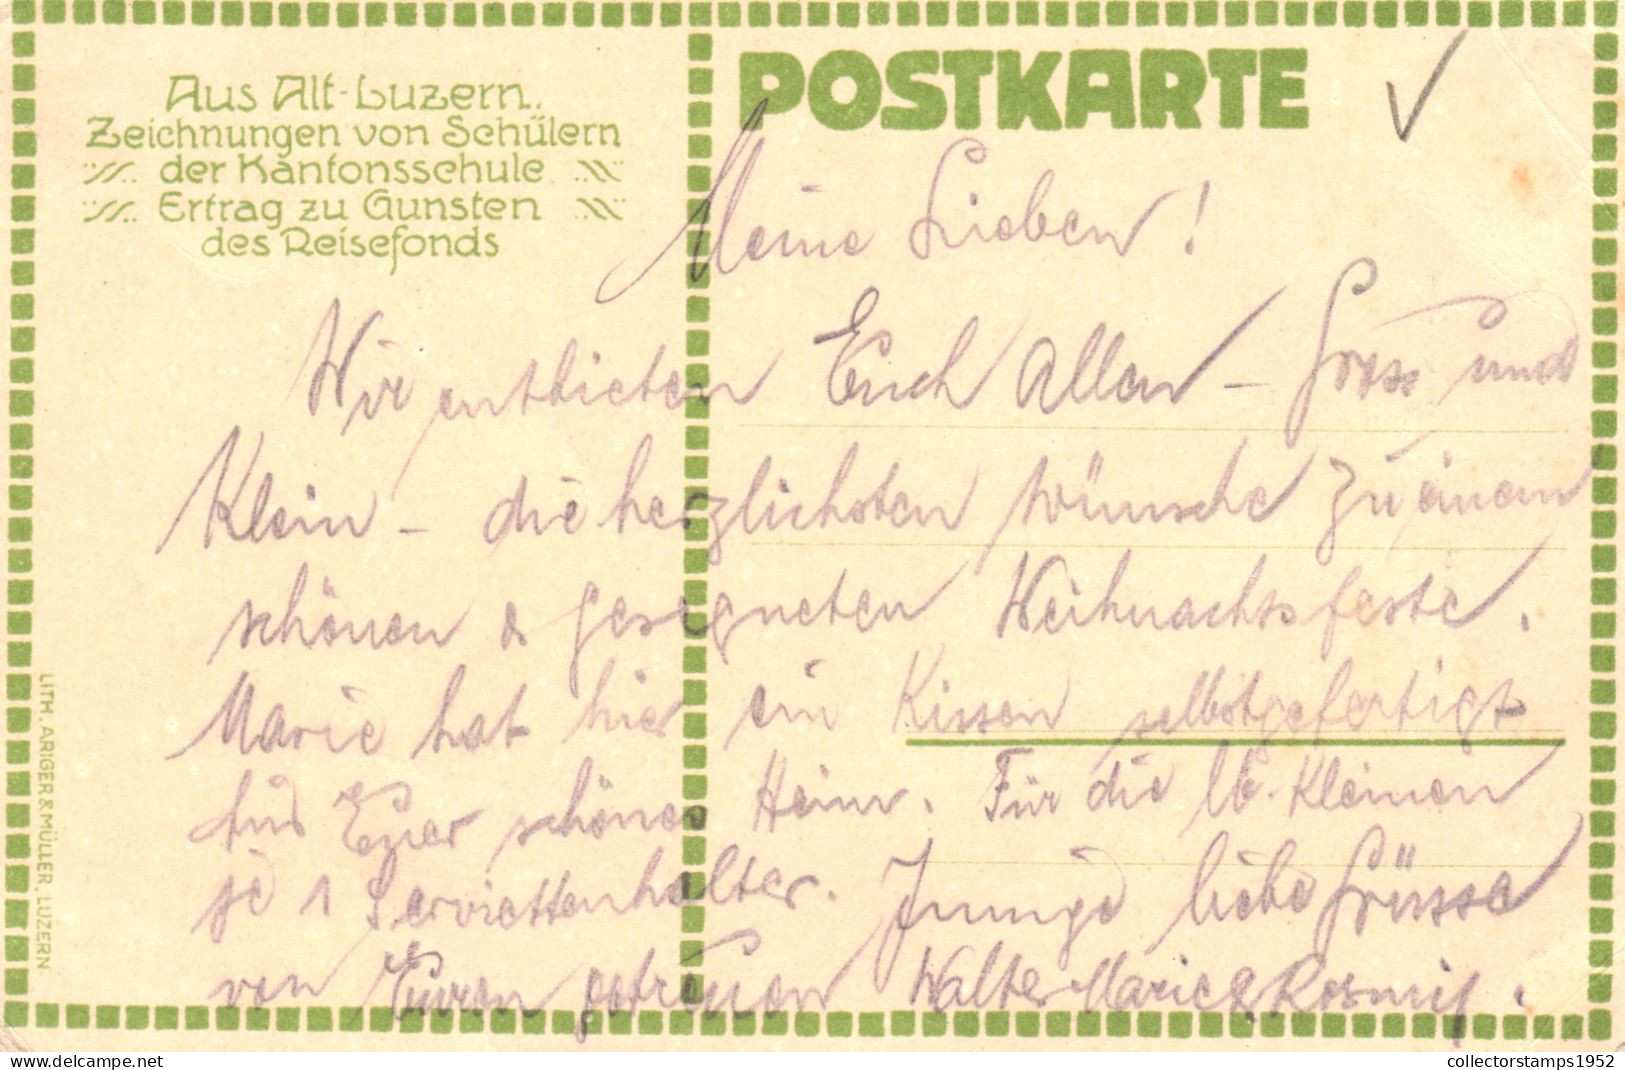 Aus Alt-Luzern.
Zeichnungen von Schülern
der Kantonsschule
Ertrag zu Gunsten
des Reisefonds
POSTKARTE
Meine Lieben!
Wir entbieten Euch Allen – Gross und
Klein – die herzlichsten Wünsche zu einem
schönen & gesegneten Weihnachtsfeste.
Marie hat hier ein Kissen selbstgefertigt
Euer schönes Heim. Für die lb. Kleinen
je 1 Serviettenhalter. Innige liebe Grüsse
von Euren getreuen Walter Marie &
LITH. ARIGER & MÜLLER, LUZERN
collectorstamps1952